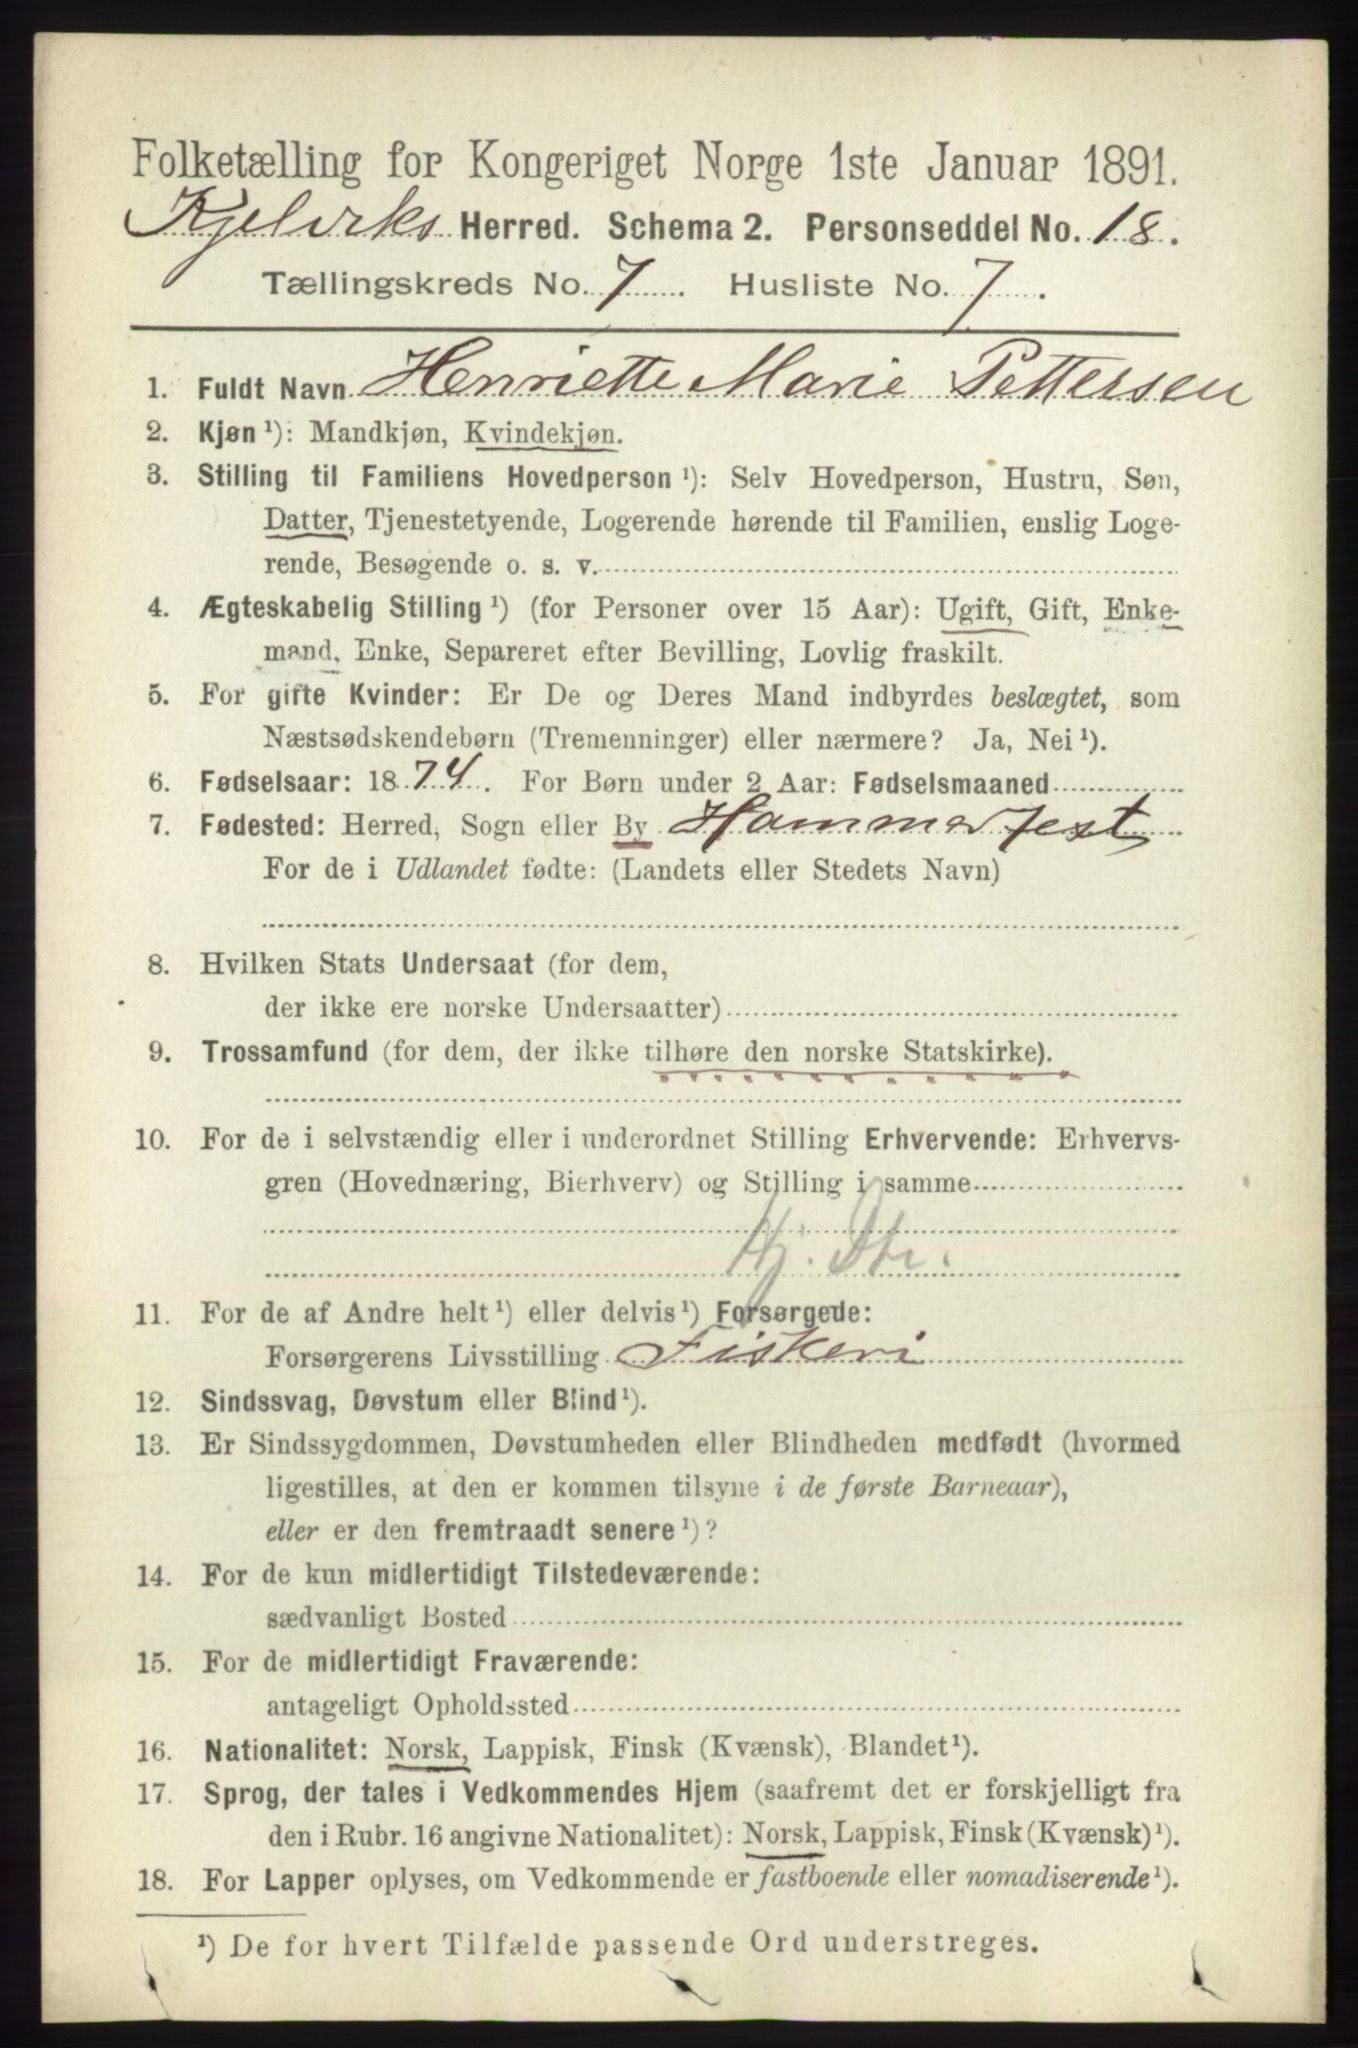 Folketælling for Kongeriget Norge 1ste Januar 1891.
Kjelviks Herred. Schema 2. Personseddel No. 18.
Tællingskreds No. 7. Husliste No. 7.
1. Fuldt Navn Henriette Marie Pettersen
2. Kjøn ¹): Mandkjøn, Kvindekjøn.
3. Stilling til Familiens Hovedperson ¹): Selv Hovedperson, Hustru, Søn,
Datter, Tjenestetyende, Logerende hørende til Familien, enslig Loge-
rende, Besøgende o. s. v.
4. Ægteskabelig Stilling ¹) (for Personer over 15 Aar): Ugift, Gift, Enke-
mand, Enke, Separeret efter Bevilling, Lovlig fraskilt.
5. For gifte Kvinder: Er De og Deres Mand indbyrdes beslægtet, som
Næstsødskendebørn (Tremenninger) eller nærmere? Ja, Nei ¹).
6. Fødselsaar: 1874. For Børn under 2 Aar: Fødselsmaaned
7. Fødested: Herred, Sogn eller By Hammerfest
For de i Udlandet fødte: (Landets eller Stedets Navn)
8. Hvilken Stats Undersaat (for dem,
der ikke ere norske Undersaatter)
9. Trossamfund (for dem, der ikke tilhøre den norske Statskirke).
10. For de i selvstændig eller i underordnet Stilling Erhvervende: Erhvervs-
gren (Hovednæring, Bierhverv) og Stilling i samme
Hj. Dtr.
11. For de af Andre helt ¹) eller delvis ¹) Forsørgede:
Forsørgerens Livsstilling Fiskeri
12. Sindssvag, Døvstum eller Blind ¹).
13. Er Sindssygdommen, Døvstumheden eller Blindheden medfødt (hvormed
ligestilles, at den er kommen tilsyne i de første Barneaar),
eller er den fremtraadt senere ¹)?
14. For de kun midlertidigt Tilstedeværende:
sædvanligt Bosted
15. For de midlertidigt Fraværende:
antageligt Opholdssted
16. Nationalitet: Norsk, Lappisk, Finsk (Kvænsk), Blandet ¹).
17. Sprog, der tales i Vedkommendes Hjem (saafremt det er forskjelligt fra
den i Rubr. 16 angivne Nationalitet): Norsk, Lappisk, Finsk (Kvænsk) ¹).
18. For Lapper oplyses, om Vedkommende er fastboende eller nomadiserende ¹).
¹) De for hvert Tilfælde passende Ord understreges.